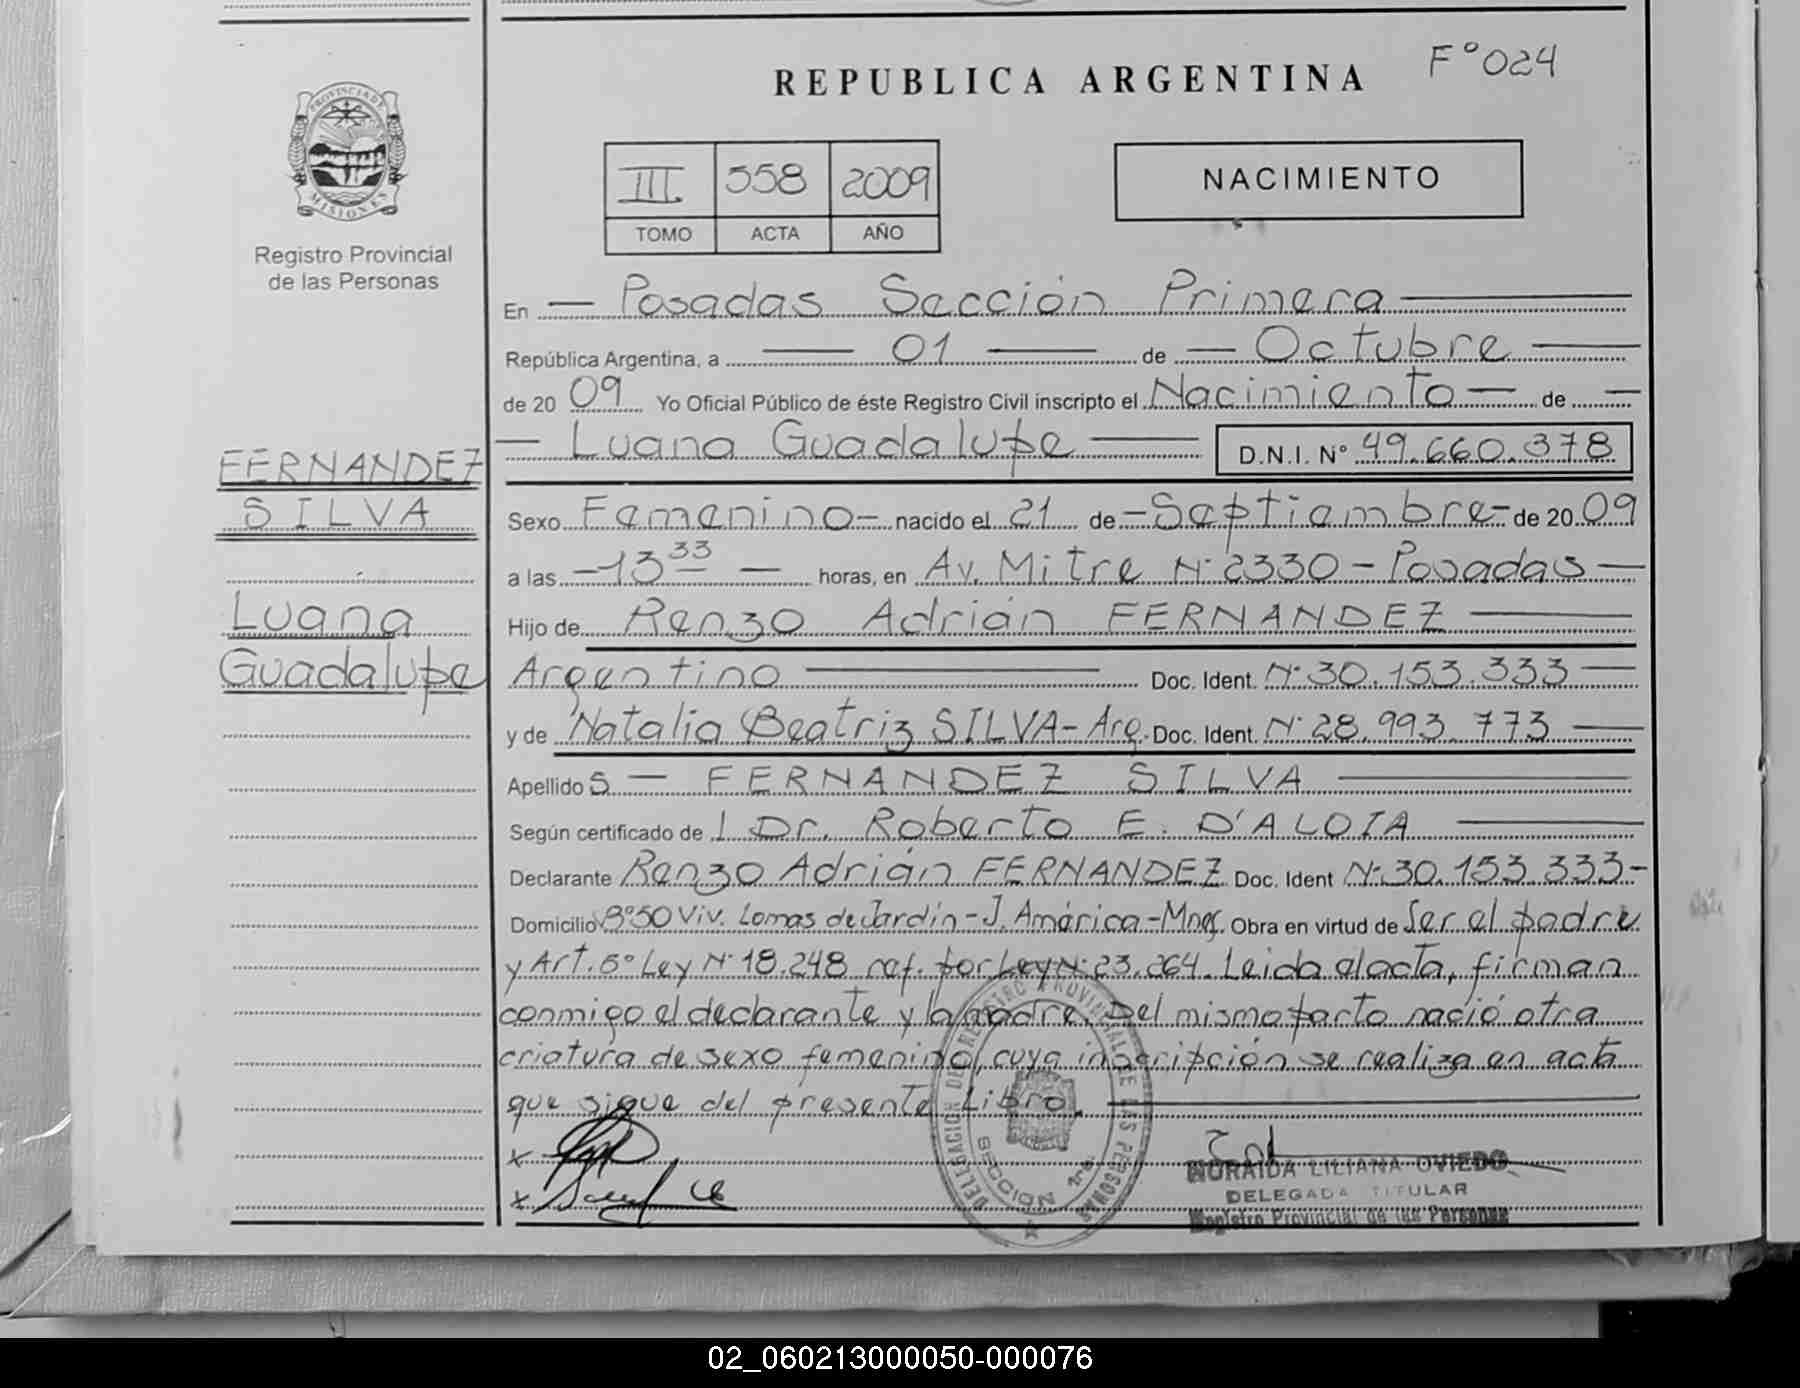 F° 024
REPUBLICA ARGENTINA
PROVINCIA DE
MISIONES
Registro Provincial
de las Personas
III. 558 2009
TOMO ACTA AÑO
NACIMIENTO
En — Posadas Sección Primera —
República Argentina, a — 01 — de — Octubre —
de 20 09 Yo Oficial Público de éste Registro Civil inscripto el Nacimiento — de —
— Luana Guadalupe — D.N.I. N° 49.660.378
FERNANDEZ
SILVA
Luana
Guadalupe
Sexo Femenino — nacido el 21 de — Septiembre — de 20 09
a las — 13 33 — horas, en Av. Mitre N° 2330 — Posadas —
Hijo de Renzo Adrián FERNANDEZ —
Argentino — Doc. Ident. N° 30.153.333 —
y de Natalia Beatriz SILVA - Arg. Doc. Ident. N° 28.993.773 —
Apellido s — FERNANDEZ SILVA —
Según certificado de l Dr. Roberto E. D'ALOIA —
Declarante Renzo Adrián FERNANDEZ Doc. Ident N° 30.153.333 -
Domicilio B° 50 Viv. Lomas de Jardín - J. América - Mnes. Obra en virtud de Ser el padre
y Art. 5° Ley N° 18.248 ref. por Ley N° 23.264. Leida el acta, firman
conmigo el declarante y la madre. Del mismo parto nació otra
criatura de sexo femenino, cuya inscripción se realiza en acta
que sigue del presente Libro. —
DELEGACION DEL REGISTRO PROVINCIAL DE LAS PERSONAS
SECCION 1ra.
NORAIDA LILIANA OVIEDO
DELEGADA TITULAR
Registro Provincial de las Personas
02_060213000050-000076